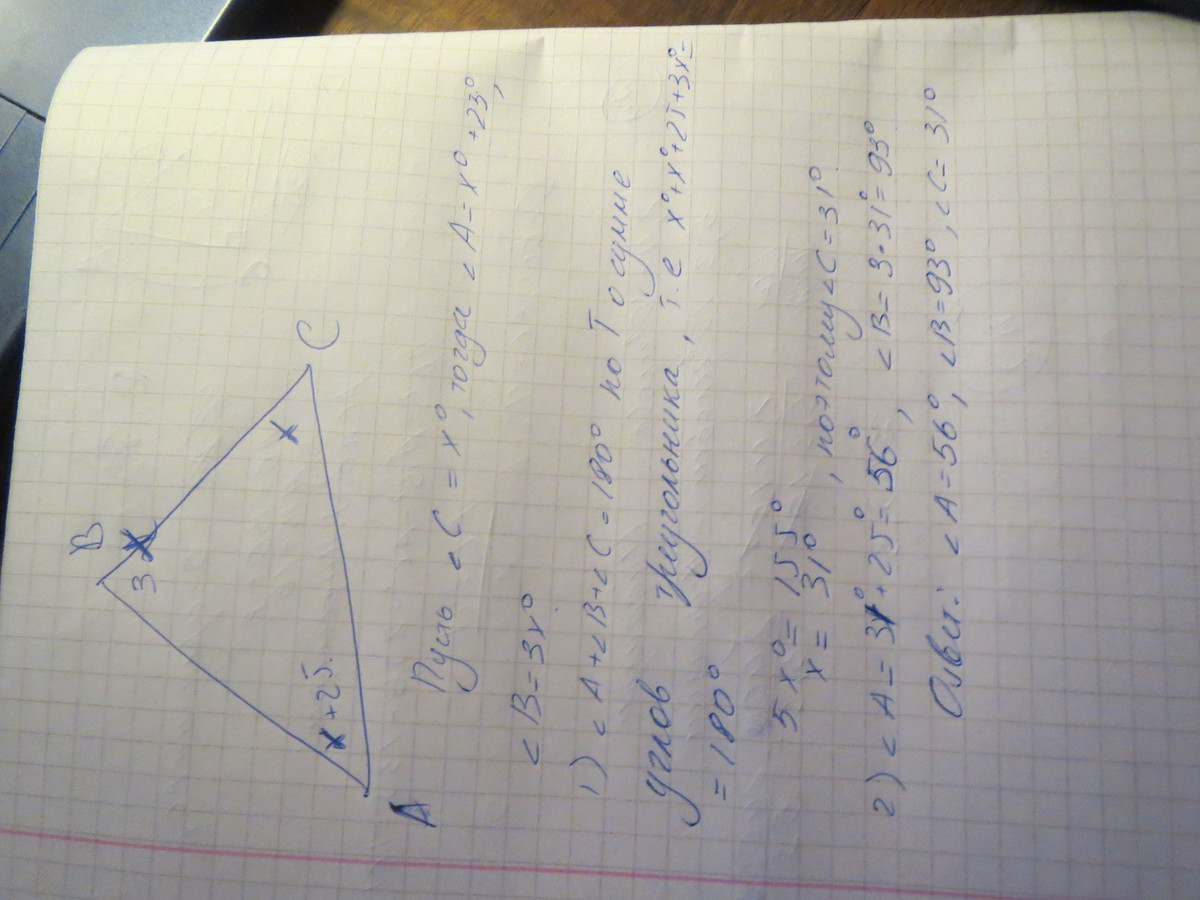 B
3x
x+25.
x
A
C
Пусть ∠C = x°, тогда ∠A = x° + 23°,
∠B = 3x°
1) ∠A+∠B+∠C = 180° по Т о сумме
углов треугольника, т.е x°+x°+25+3x°=
= 180°
5x° = 155°
x = 31°, поэтому ∠C = 31°
2) ∠A = 31°+25° = 56°, ∠B = 3·31° = 93°
Ответ: ∠A = 56°, ∠B = 93°, ∠C = 31°